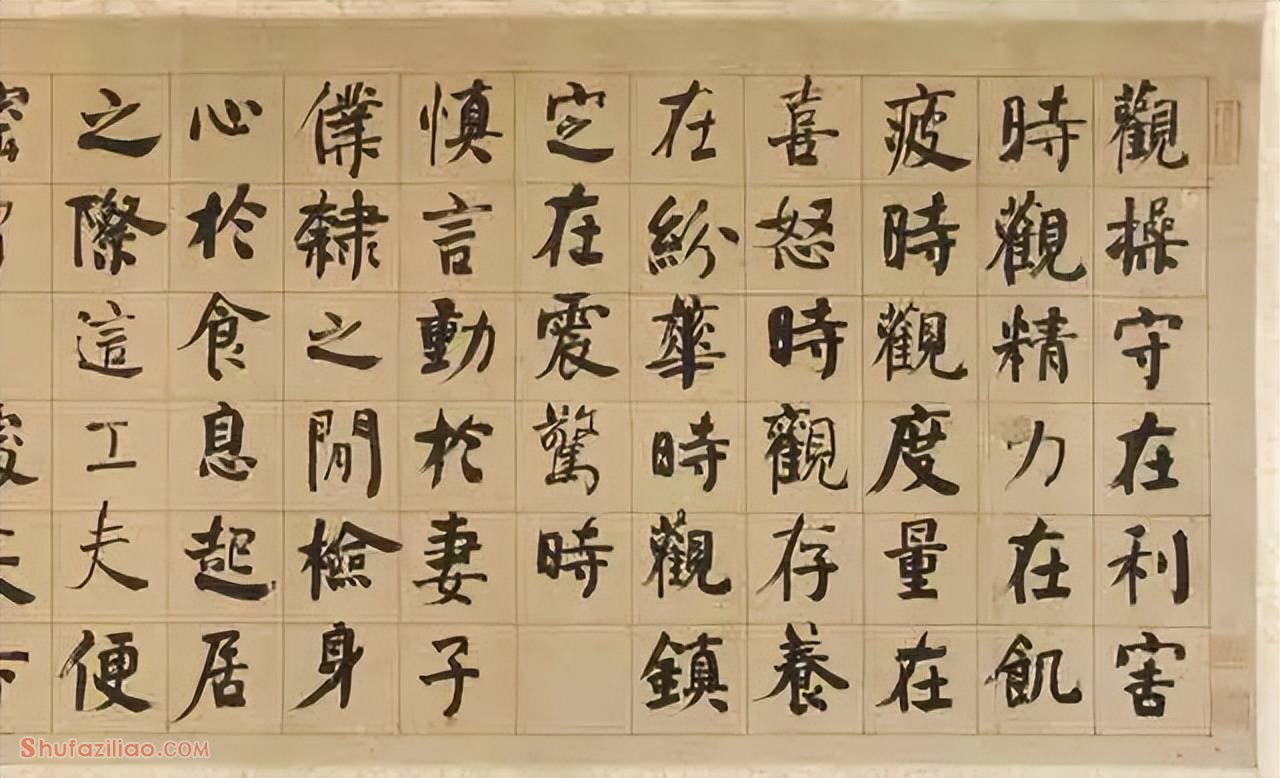 觀操守在利害
時觀精力在飢
疲時觀度量在
喜怒時觀存養
在紛華時觀鎮
定在震驚時
慎言動於妻子
僕隸之間檢身
心於食息起居
之際這工夫便
Shufaziliao.COM